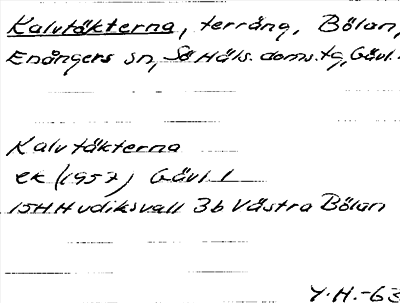 Kalvtäkterna, terräng, Bölan,
Enångers sn, Sö Häls. doms.tg, Gävl.
Kalvtäkterna
ek (1957) Gävl. l
15H Hudiksvall 3b Västra Bölan
Y.H.-63